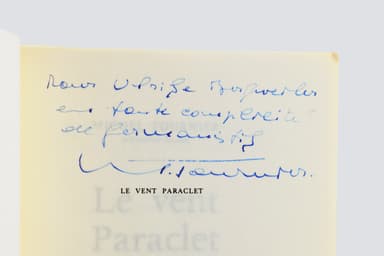 Pour Ulrike
en toute complicité
de germanistes
M. Tournier.
LE VENT PARACLET
Le Vent
Paraclet